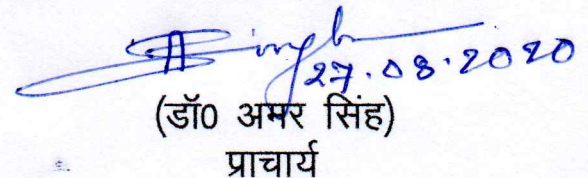 A Singh
27.08.2020
(डॉ0 अमर सिंह)
प्राचार्य